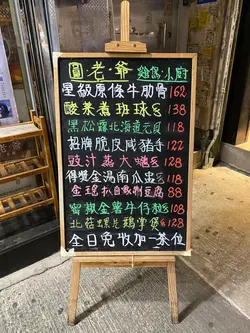 圓老爺 雞窩小廚
星級原條牛肋骨 162
酸菜煮班球 138
黑松露北海道元貝 118
招牌脆皮咸豬手 122
豉汁蒸大鱔 128
得獎金湯南瓜蟲 118
金瑤扒自家制豆腐 88
蜜椒金薯牛仔粒 108
北菇螺片鷄掌煲 128
全日免收加一茶位